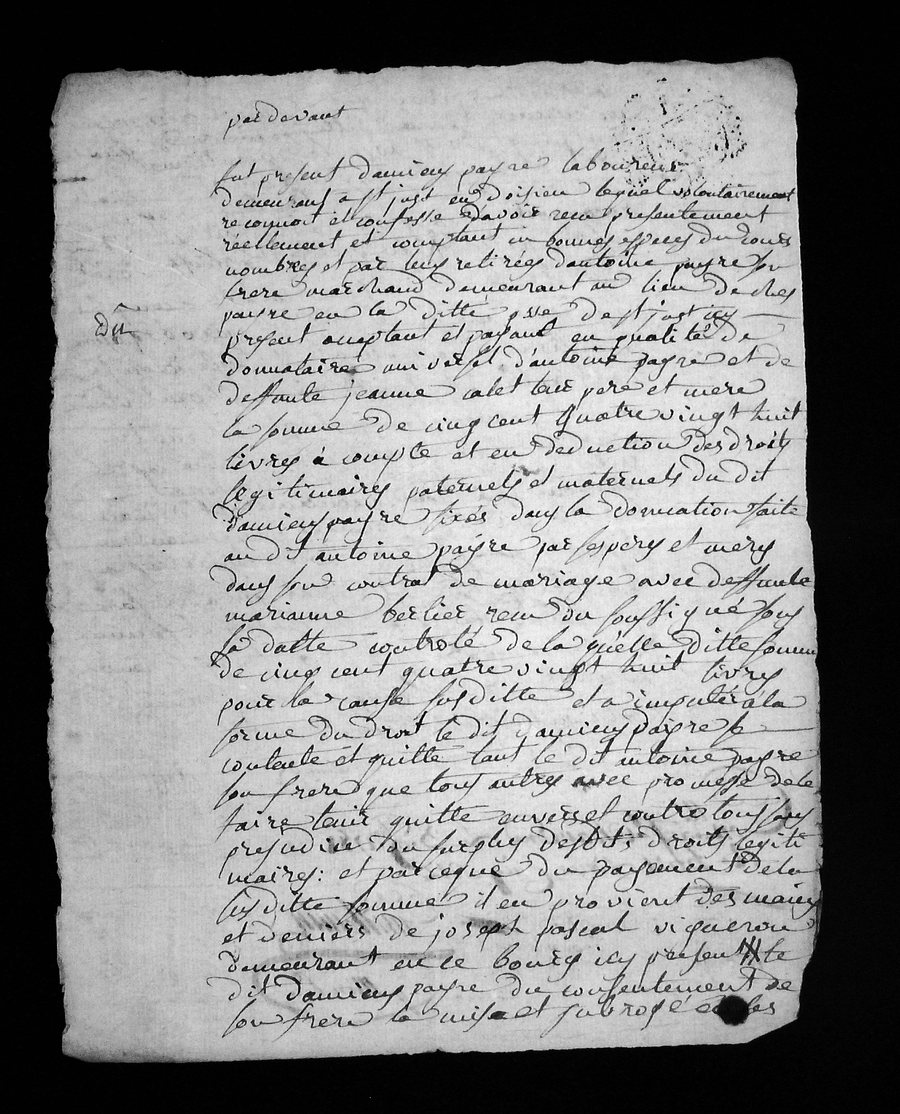 par devant
fut present damien payre laboureur
demeurant a st just en doisieu lequel volontairement
reconnoit et confesse davoir reçu presentement
réellement et comptant en bonnes espèces du cours
nombrées et par luy retirées dantoine payre son
frere marchand demeurant au lieu de chés
payre en la ditte psse de st just icy
present acceptant et payant en qualité de
donnataire universel d'antoine payre et de
deffunte jeanne calet leur pere et mere
la somme de cinq cent quatre vingt huit
livres à compte et en deduction des droits
legitimaires paternels et maternels du dit
damien payre fixés dans la donnation faite
au dit antoine payre par ses pere et mere
dans son contrat de mariage avec deffunte
marianne berlier reçu du soussigné sous
sa datte controlé de la quelle ditte somme
de cinq cent quatre vingt huit livres
pour la cause susditte et a imputer à la
forme du droit le dit damien payre se
contente et quitte tant le dit antoine payre
son frere que tous autres avec promesse de le
faire tenir quitte envers et contre tous sans
prejudice du surplus desdits droits legiti
maires: et parceque du payement de la
susditte somme il en provient des mains
et deniers de joseph pascal vigneron
demeurant en ce bourg icy present le
dit damien payre du consentement de
son frere la mis et subrogé es les